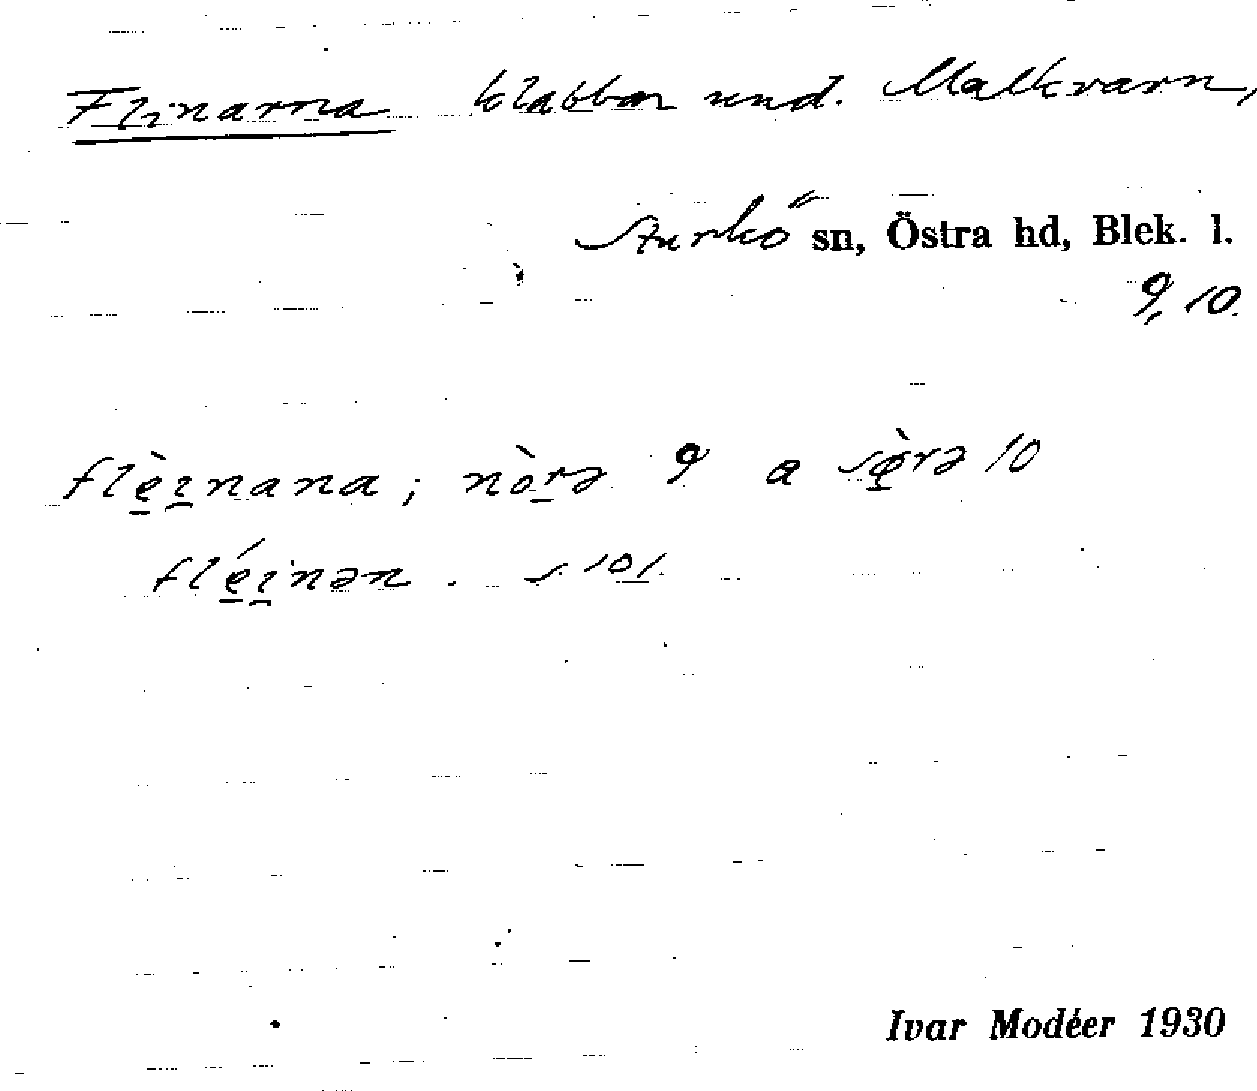 Flinarna klabbar und. Malkvarn,
Sturkö sn, Östra hd, Blek. l.
9, 10.
flèi̠nana; nòrə 9 a sø̀rə 10
fléi̠nən. s. 101.
Ivar Modéer 1930